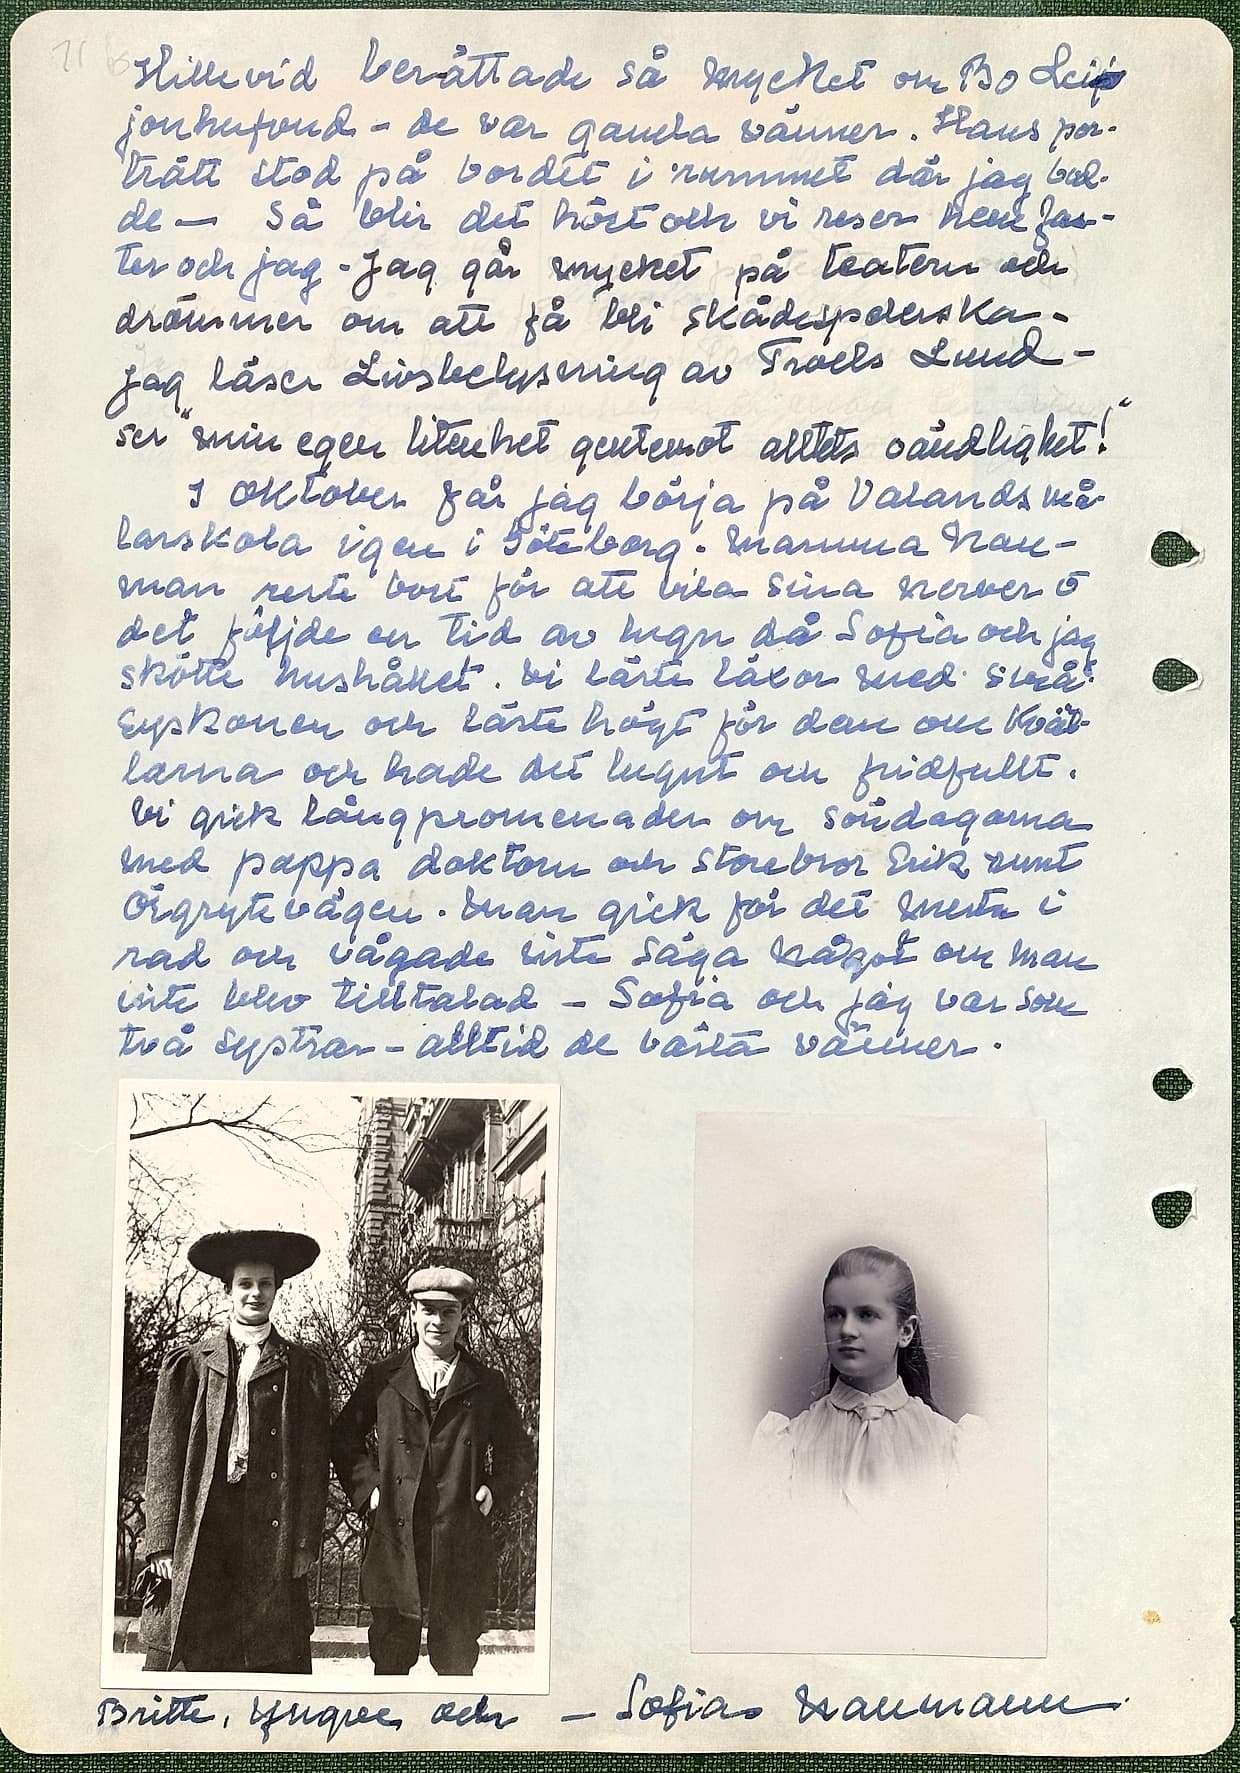 11
Hillevid berättade så mycket om Bo Lei
jonhufvud - de var gamla vänner. Hans por-
trätt stod på bordet i rummet där jag bod-
de — Så blir det höst och vi reser hem fas-
ter och jag - Jag går mycket på teatern och
drömmer om att få bli skådespelerska -
Jag läser Livsbelysning av Troels Lund -
ser "min egen litenhet gentemot alltets oändlighet!"
I oktober får jag börja på Valands må-
larskola igen i Göteborg. Mamma Nau-
man reste bort för att vila sina nerver o
det följde en tid av lugn då Sofia och jag
skötte hushållet. Vi läste läxor med små-
syskonen och läste högt för dem om kväl-
larna och hade det lugnt och fridfullt.
Vi gick långpromenader om söndagarna
med pappa doktorn och storebror Erik runt
Örgrytevägen. Man gick för det mesta i
rad och vågade inte säga något om man
inte blev tilltalad - Sofia och jag var som
två systrar - alltid de bästa vänner.
Britte, Yngve och - Sofia Naumann.